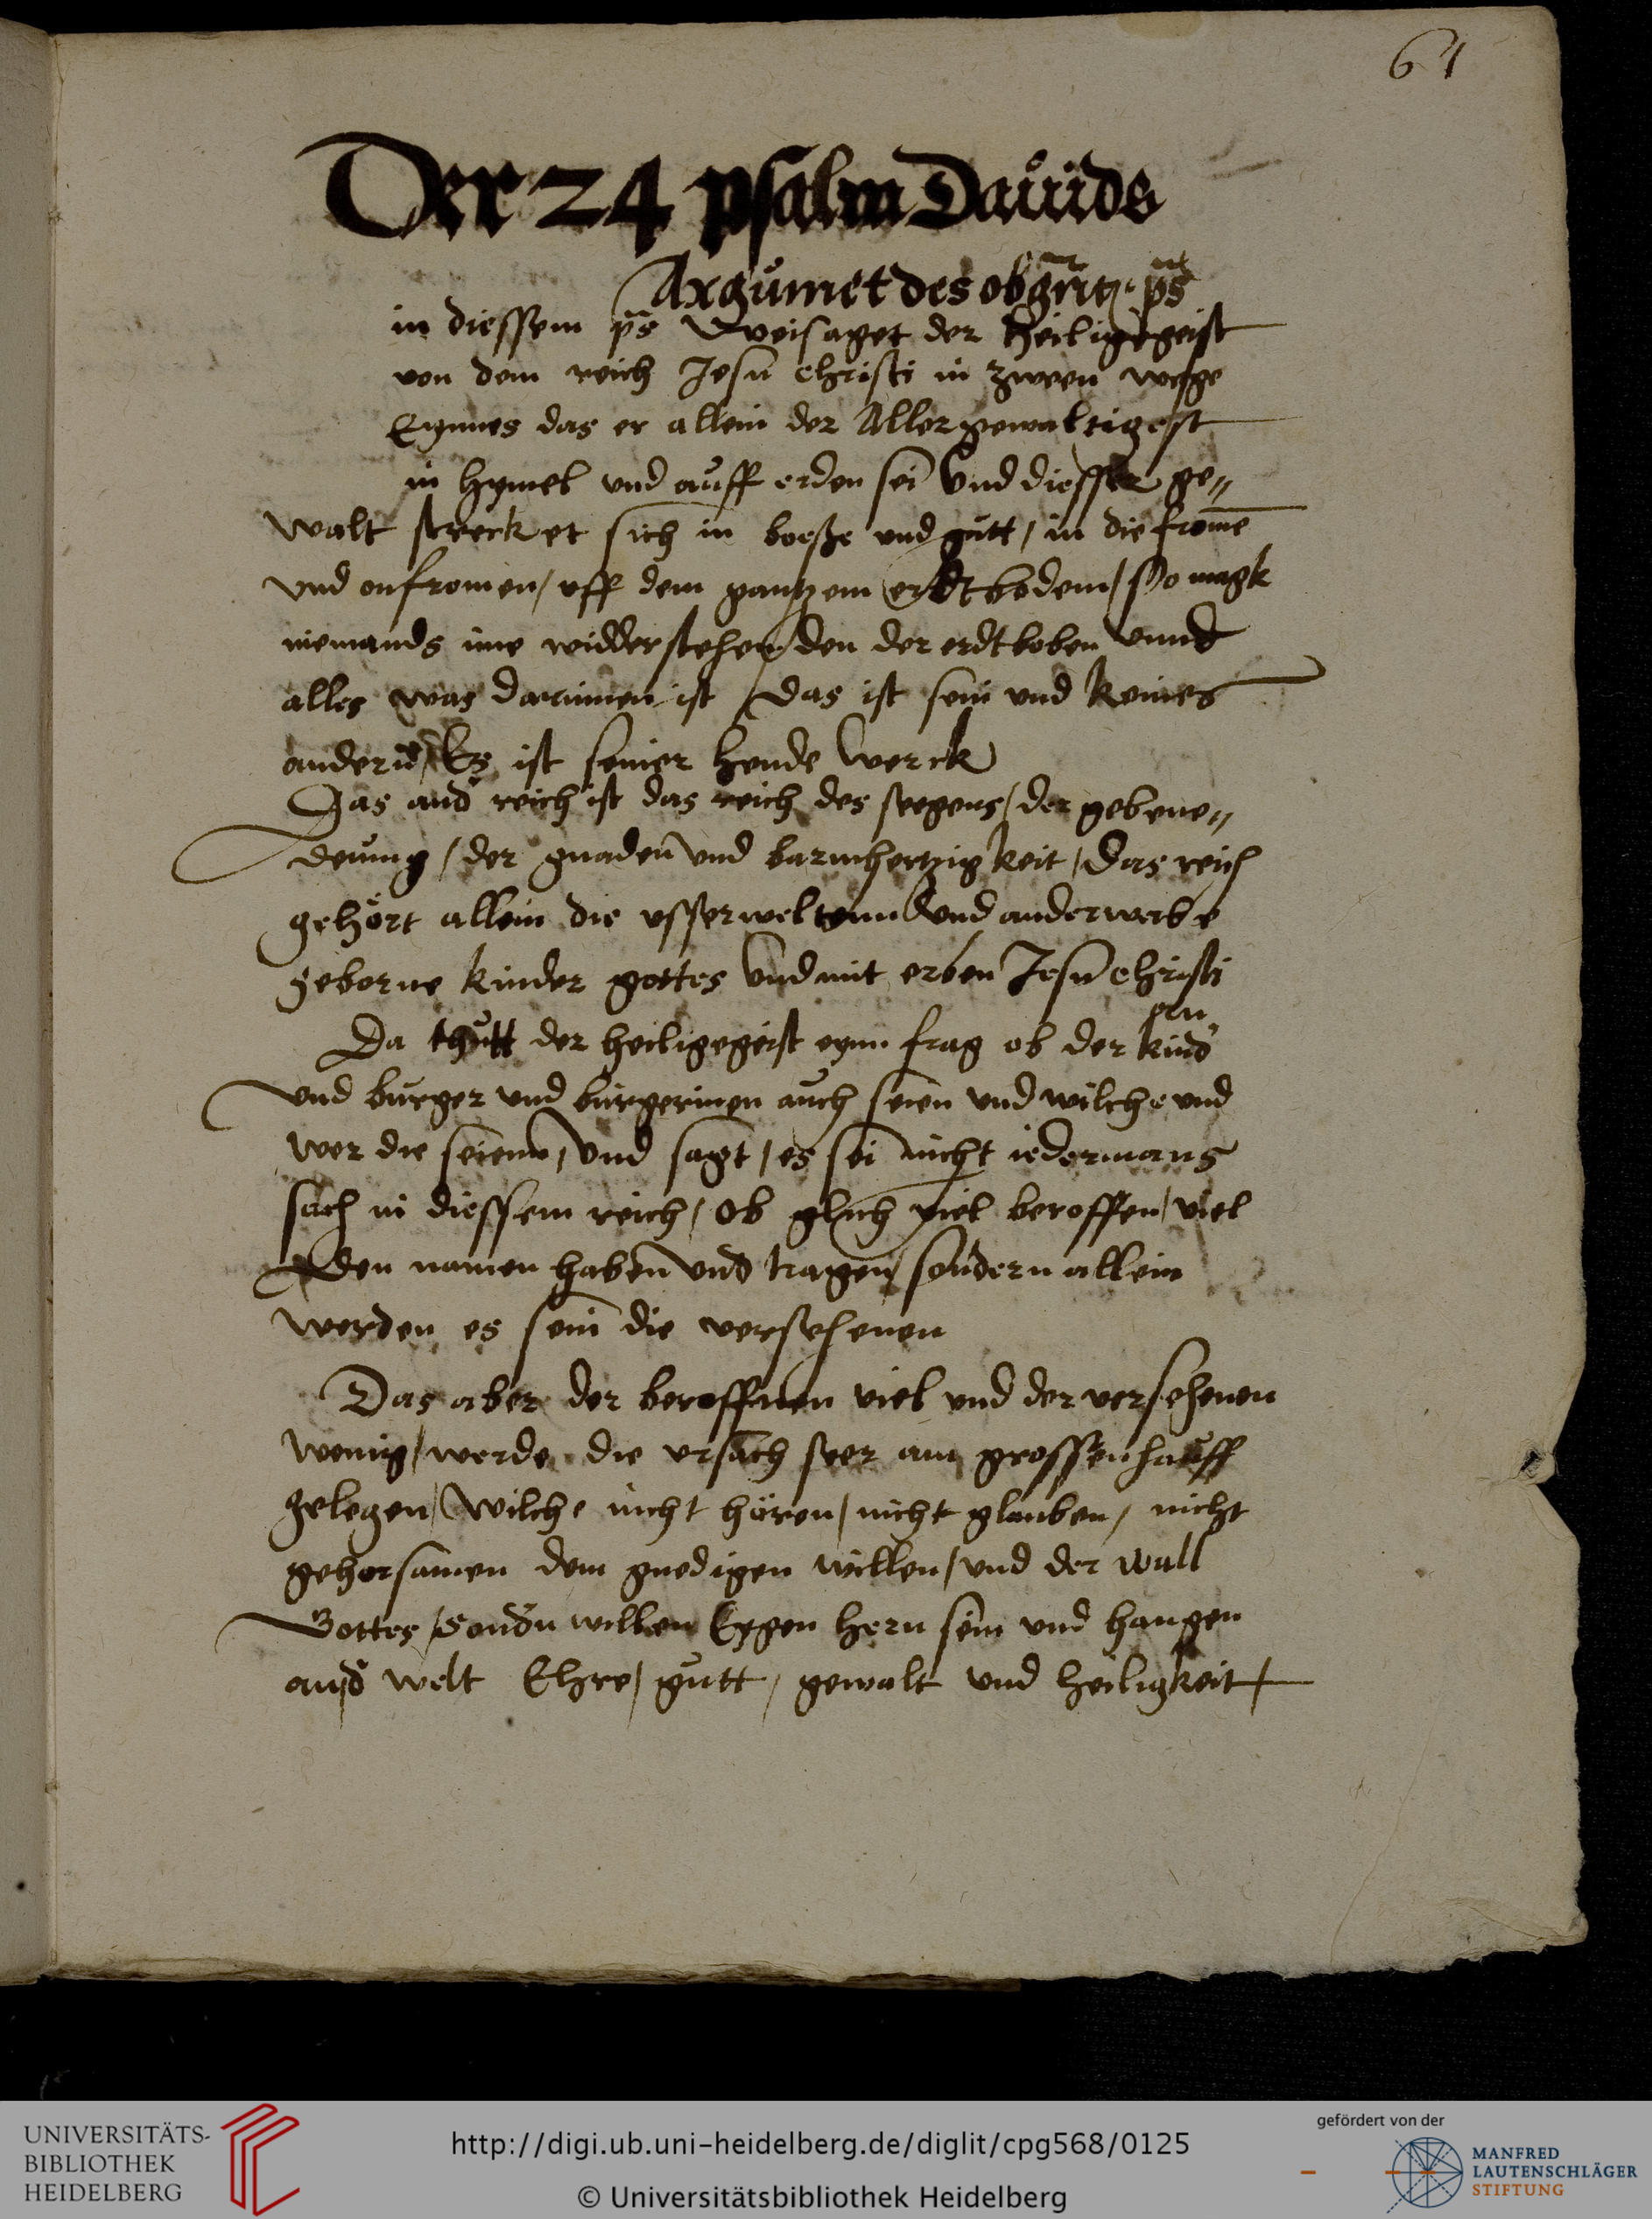 61
Der 24 psalm Dauids
Argumet des obgntz ps
in diessem ps Weisaget der heiligegeist
von dem reich Jesu christi in zween wege
Eynmes das er allein der Aller gewaltigest
in hymel vnd auff erden sei Vnd diesser ge„
walt strecket sich in boesze vnd gutt / in die fromē
vnd onfromen / vff dem gantzem erdtbodem / So magk
niemands ime widderstehen / den der erdtboden vnnd
alles was darinnen ist / Das ist sein vnd keines
andern / Es ist seiner hende Werck
Das and reich ist das reich des seegens / der gebene„
deiung / der gnaden vnd barmhertzigkeit / Das reich
gehört allein die vsserweltenn Vnd anderwerbe
geborne kinder gottes Vnd mit erben Jesu christi
Da thutt der heiligegeist eynn frag ob der kind
vnd burger vnd burgerinen auch seien vnd wilche vnd
wer die seienn / Vnd sagt / es sei nicht iedermans
sach in diessem reich / Ob glich viel beroffen / viel
Den namen haben Vnd tragen / sondern allein
werden es sein die versehenen
Das aber der beroffnen viel vnd der versehenen
wenig / werde die vrsach seer am grossenhauff
gelegen / Wilche nicht hören / nicht glauben / nicht
gehorsamen dem gnedigen willen / vnd der wall
Gottes / Sondn willen Eygen hern sein vnd hangen
and welt Ehre / gutt / gewalt vnd heiligkeit /
UNIVERSITÄTS-
BIBLIOTHEK
HEIDELBERG
http://digi.ub.uni-heidelberg.de/diglit/cpg568/0125
© Universitätsbibliothek Heidelberg
gefördert von der
MANFRED
LAUTENSCHLÄGER
STIFTUNG